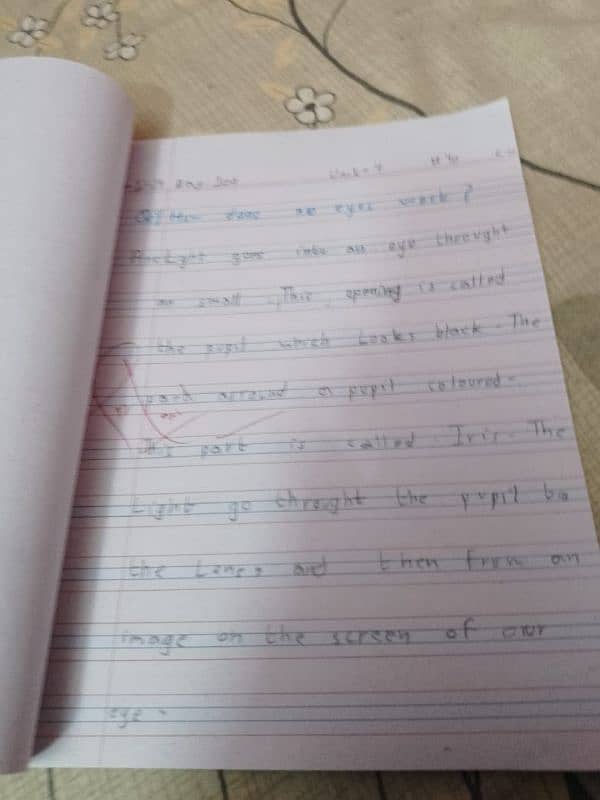 Unit-7
Q1 How does an eyes work?
Ans Light goes into an eye throught
an small. This opening is called
the pupil which Looks black. The
part arround a pupil coloured.
This part is called Iris. The
Light go throught the pupil to
the Lenes and then from an
image on the screen of our
eye.